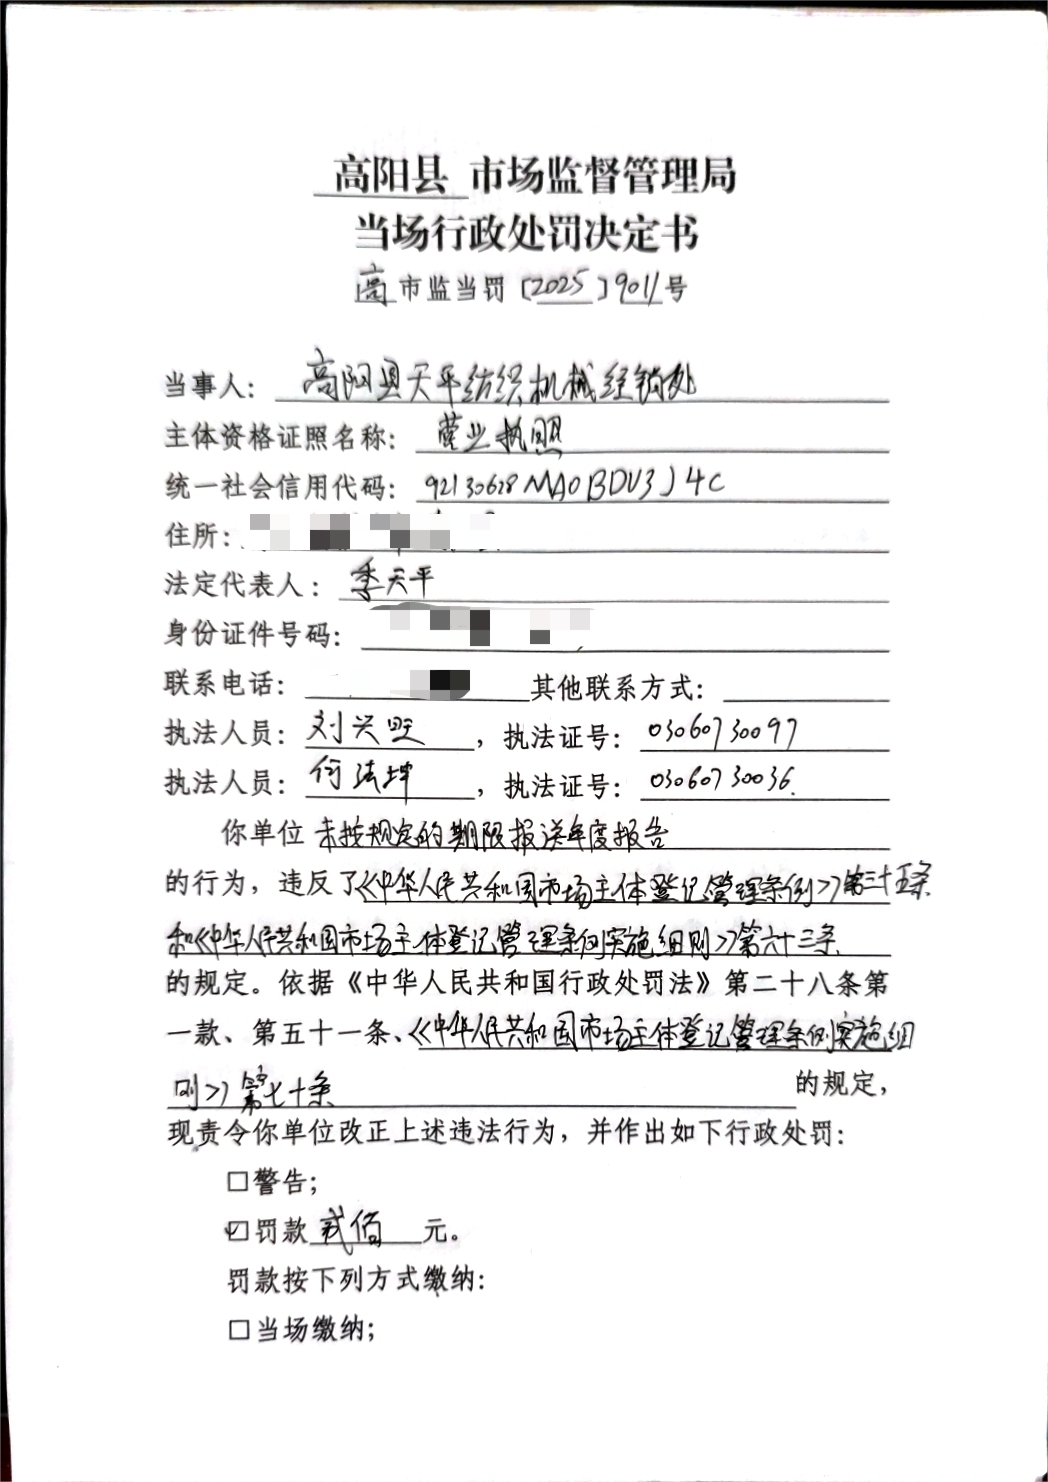 高阳县 市场监督管理局
当场行政处罚决定书
高市监当罚〔2025〕9011号
当事人：高阳县天平纺织机械经销处
主体资格证照名称：营业执照
统一社会信用代码：92130628MA0BDUV3J4C
住所：
法定代表人：季天平
身份证件号码：
联系电话： 其他联系方式：
执法人员：刘兴旺，执法证号：03060730097
执法人员：何法坤，执法证号：03060730036.
你单位 未按规定的期限报送年度报告
的行为，违反了《中华人民共和国市场主体登记管理条例》第三十五条
和《中华人民共和国市场主体登记管理条例实施细则》第六十三条
的规定。依据《中华人民共和国行政处罚法》第二十八条第
一款、第五十一条、《中华人民共和国市场主体登记管理条例实施细
则》第七十条 的规定，
现责令你单位改正上述违法行为，并作出如下行政处罚：
□警告；
☑罚款 贰佰 元。
罚款按下列方式缴纳：
□当场缴纳；